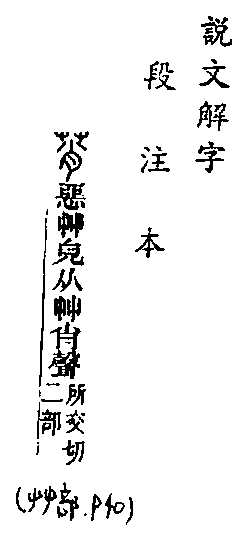 說文解字
段注本
莦惡艸皃从艸肖聲所交切二部
(艸部.P40)